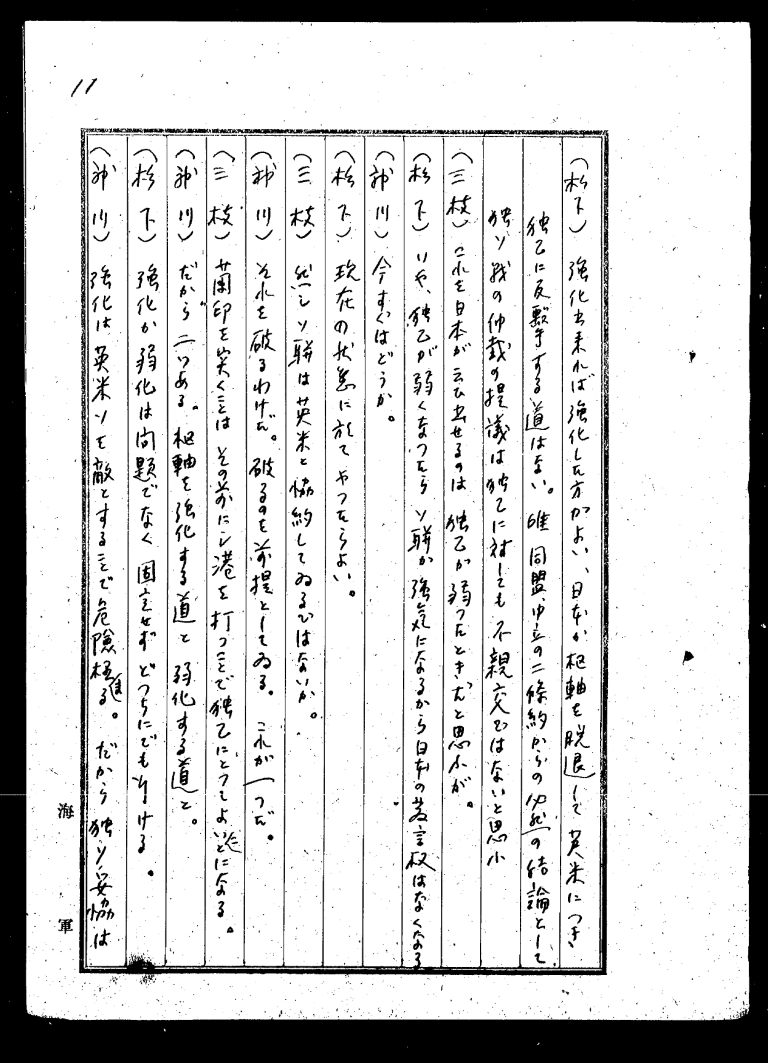 11
(松下) 強化出来れば強化した方がよい、日本が枢軸を脱退して英米につき
独乙に反撃する道はない。唯同盟、中立の二條約からの必然の結論として
独ソ戦の仲裁の提議は独乙に対しても不親交ではないと思ふ
(三枝) これを日本が云ひ出せるのは独乙が弱つたときだと思ふが。
(松下) いや、独乙が弱くなつたらソ聯が強気になるから日本の発言权はなくなる
(神川) 今すぐはどうか。
(松下) 現在の状態に於てやつたらよい。
(三枝) 然しソ聯は英米と協約してゐるではないか。
(神川) それを破るわけだ。破るのを前提としてゐる。これが一つだ。
(三枝) 蘭印を突くことはその前にシ港を打つことで独乙にとつてよいことになる。
(神川) だから二つある。枢軸を強化する道と弱化する道と。
(松下) 強化か弱化は問題でなく固定せずどつちにでも行ける。
(神川) 強化は英米ソを敵とすることで危険極まる。だから独ソ妥協は
海軍